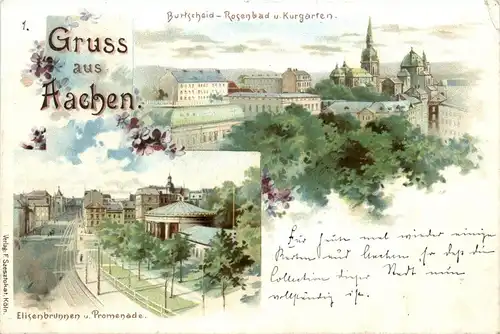 1.
Burtscheid - Rosenbad u. Kurgarten.
Gruss
aus
Aachen.
Für mal wieder einige
Karten aus Aachen, so daß die
Collection dieser Stadt nun
vollständig ist.
Elisenbrunnen u. Promenade.
Verlag: F. Soesatukat. Köln.